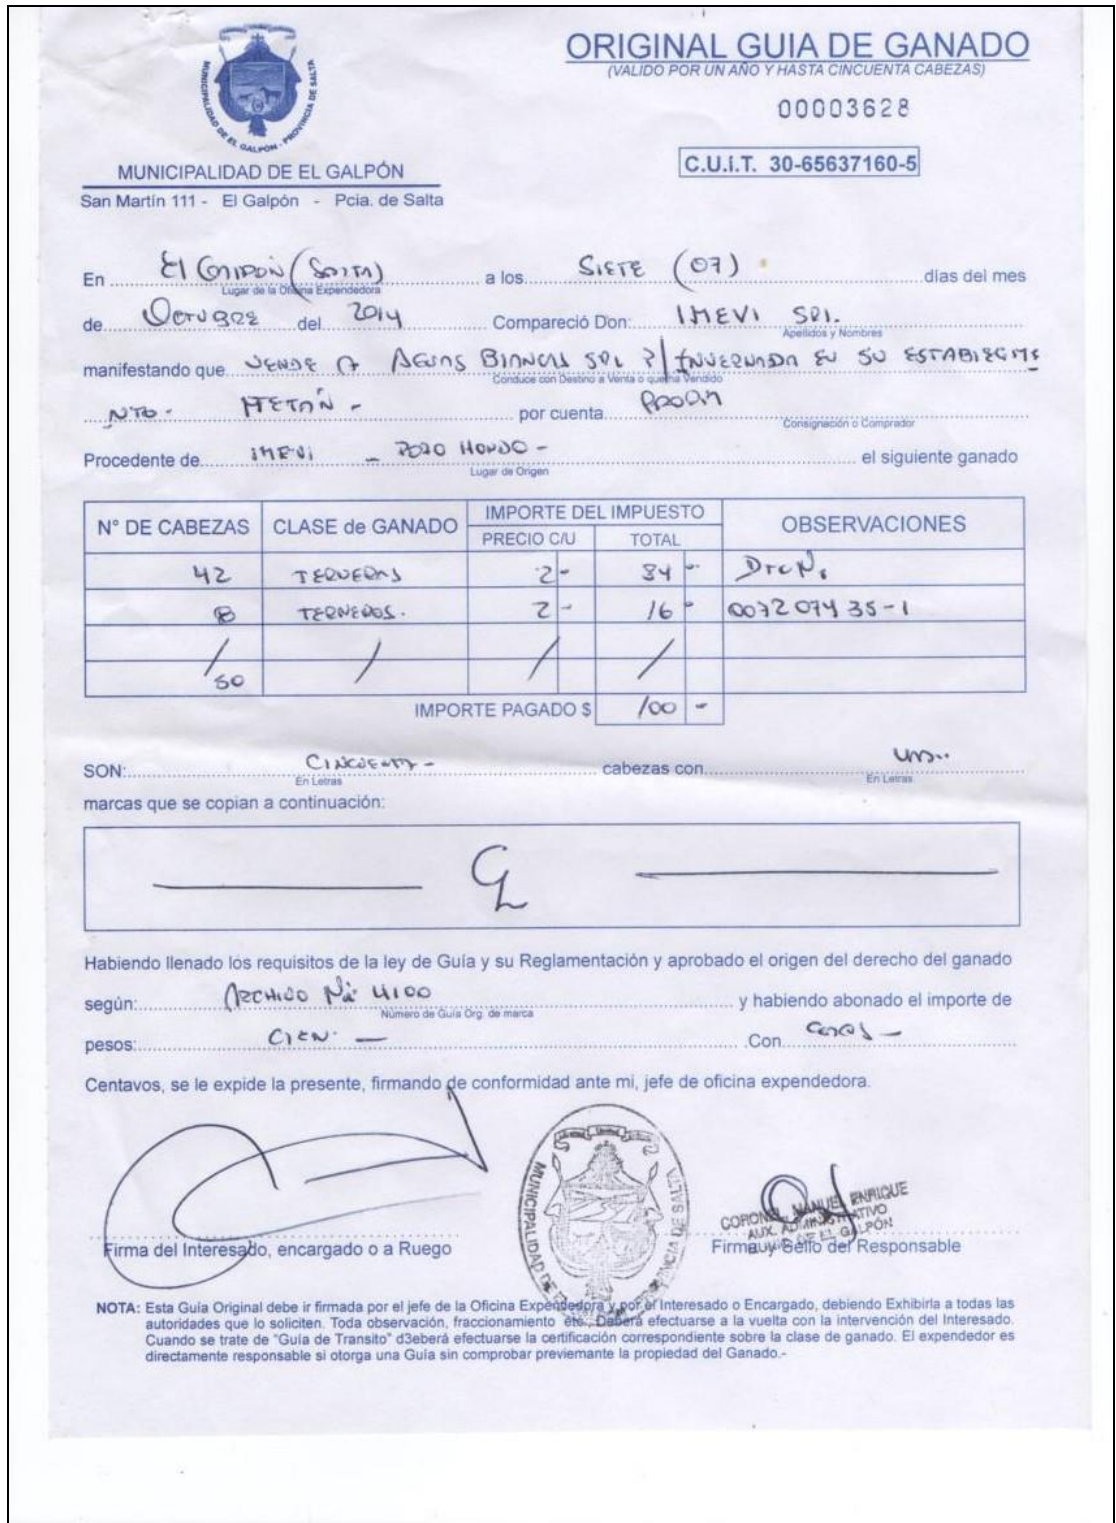 ORIGINAL GUIA DE GANADO
(VALIDO POR UN AÑO Y HASTA CINCUENTA CABEZAS)
00003628
C.U.i.T. 30-65637160-5
MUNICIPALIDAD DE EL GALPÓN - PROVINCIA DE SALTA
MUNICIPALIDAD DE EL GALPÓN
San Martín 111 - El Galpón - Pcia. de Salta
En El Galpón (Salta) a los SIETE (07) días del mes
Lugar de la Oficina Expendedora
de Octubre del 2014 Compareció Don: IMEVI SRL.
Apellidos y Nombres
manifestando que VENDE A AGUAS BLANCAS SRL P/ INVERNADA EN SU ESTABLECIMIE
Conduce con Destino a Venta o que ha Vendido
NTO. METÁN - por cuenta PROPIA
Consignación o Comprador
Procedente de IMEVI - POZO HONDO - el siguiente ganado
Lugar de Origen
N° DE CABEZAS CLASE de GANADO IMPORTE DEL IMPUESTO OBSERVACIONES
PRECIO C/U TOTAL
42 TERNERAS 2- 84 -
8 TERNEROS. 2 - 16 - 007207435-1
/ / / /
50
IMPORTE PAGADO $ 100 -
SON: CINCUENTA - cabezas con UNA..
En Letras En Letras
marcas que se copian a continuación:
Habiendo llenado los requisitos de la ley de Guía y su Reglamentación y aprobado el origen del derecho del ganado
según: ARCHIVO Nº 4100 y habiendo abonado el importe de
Número de Guía Org. de marca
pesos: CIEN. — Con
Centavos, se le expide la presente, firmando de conformidad ante mi, jefe de oficina expendedora.
MUNICIPALIDAD DE PROVINCIA DE SALTA
CORONEL MANUEL ENRIQUE
AUX. ADMINISTRATIVO
MUNIC. DE EL GALPÓN
Firma del Interesado, encargado o a Ruego Firma y Sello del Responsable
NOTA: Esta Guía Original debe ir firmada por el jefe de la Oficina Expendedora y por el Interesado o Encargado, debiendo Exhibirla a todas las
autoridades que lo soliciten. Toda observación, fraccionamiento etc., Deberá efectuarse a la vuelta con la intervención del Interesado.
Cuando se trate de "Guía de Transito" d3eberá efectuarse la certificación correspondiente sobre la clase de ganado. El expendedor es
directamente responsable si otorga una Guía sin comprobar previemante la propiedad del Ganado.-